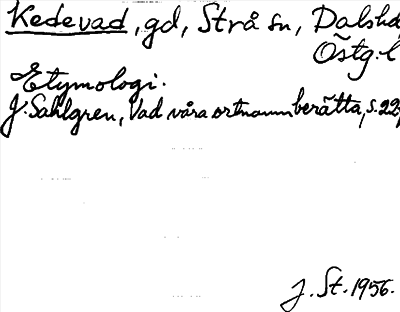 Kedevad, gd, Strå sn, Dalshd
Östg. l
Etymologi.
J. Sahlgren, Vad våra ortnamn berätta, s. 22,
J. St. 1956.